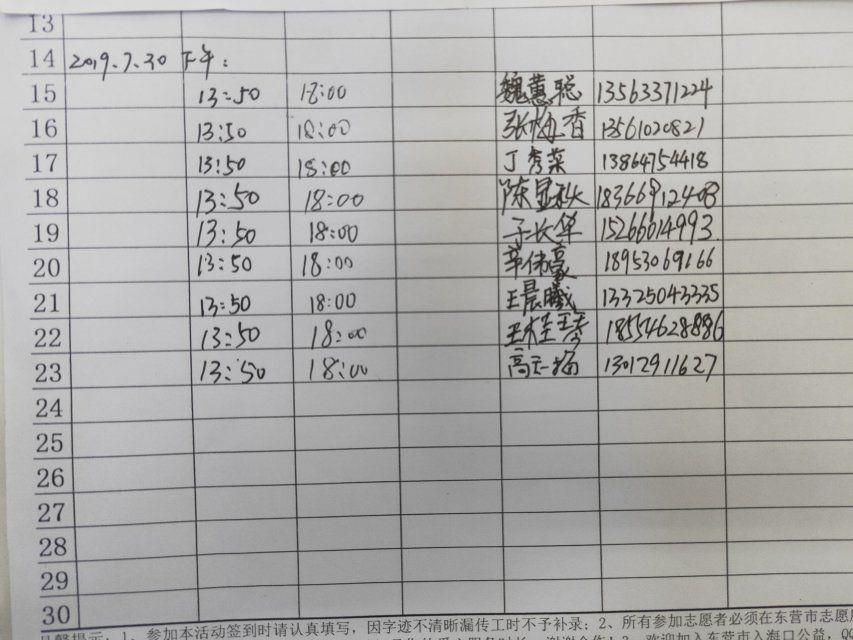 13
14 2019.7.30 下午：
15 13:50 18:00 魏蕙聪 13563371224
16 13:50 18:00 张梅香 13561020821
17 13:50 18:00 丁秀菜 13864754418
18 13:50 18:00 陈显秋 18366912408
19 13:50 18:00 于长华 15266614993
20 13:50 18:00 辛伟豪 18953069166
21 13:50 18:00 王晨曦 13325043335
22 13:50 18:00 18554628886
23 13:50 18:00 高 13012911627
24
25
26
27
28
29
30
1、参加本活动签到时请认真填写，因字迹不清晰漏传工时不予补录；2、所有参加志愿者必须在东营市志愿
欢迎加入东营市入海口公益，